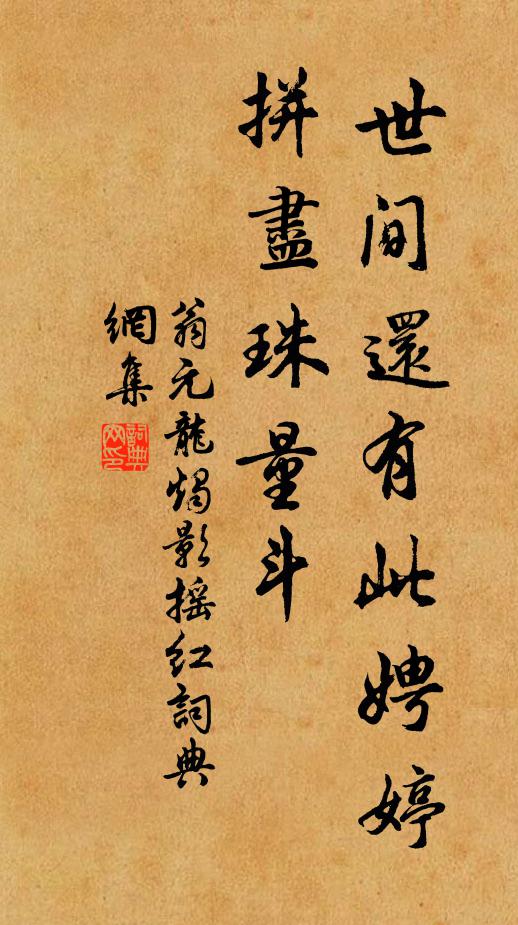 世間還有此娉婷
拼盡珠量斗
翁元龍燭影摇紅詞典
網集
詞典
网印